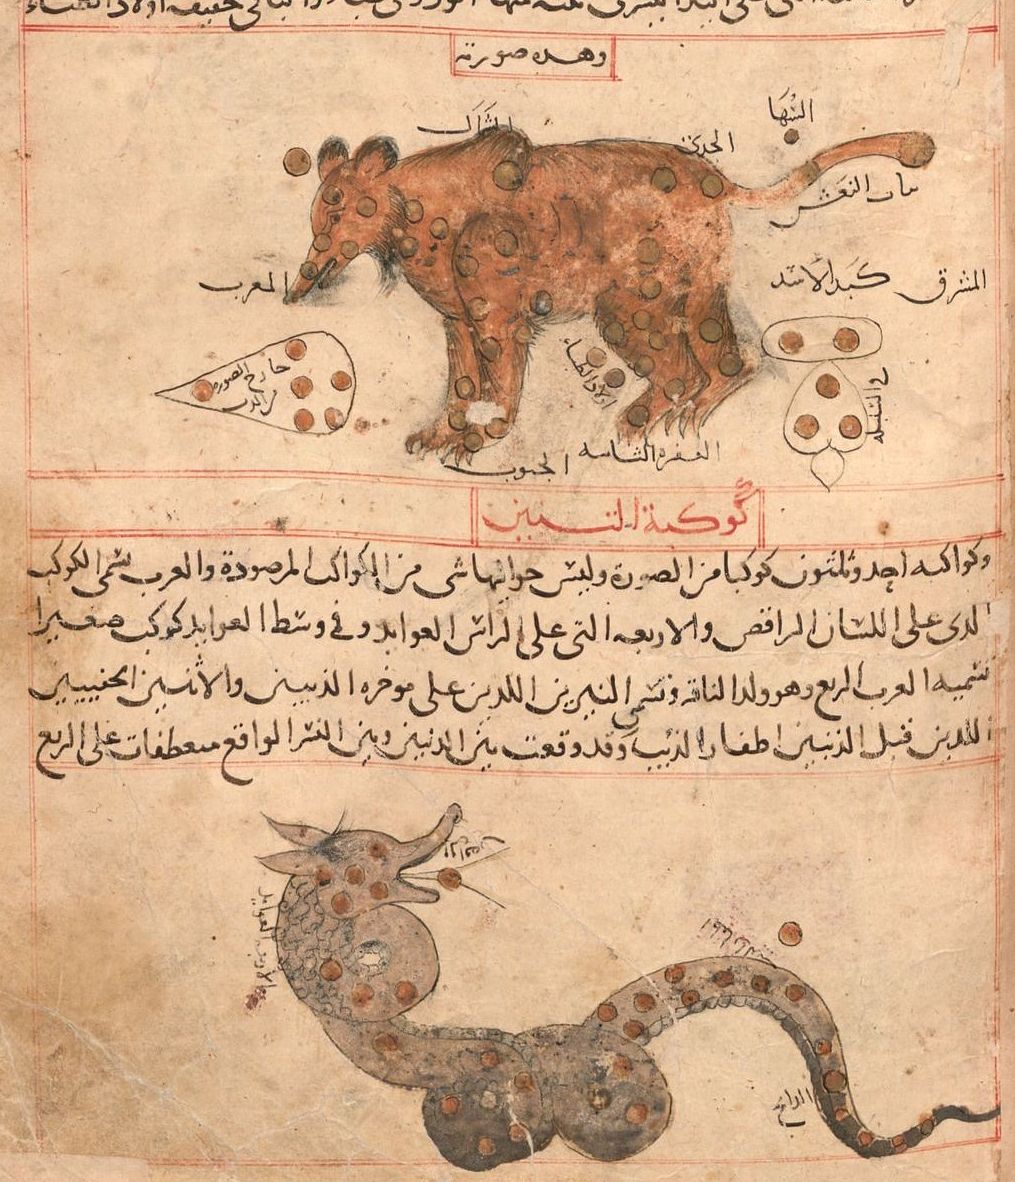 وهذه صورته
السها
الجدى
بنات النعش
المغرب
كبد الاسد
المشرق
خارج الصورة
من الدب
اولاد الظباء
القفزة الثانية
الجنوب
كوكبة التنين
وكواكبه احد وثلثون كوكبا من الصورة وليس حواليها شى من الكواكب المرصودة والعرب تسمى الكوكب
الذى على اللسان الراقص والاربعه التى على الراس العوايد وفى وسط العوايد كوكب صغيرا
تسميه العرب الربع وهو ولد الناقه وتسمى النيرين اللذين على موخره الذيبين والاثنين الخفيين
اللذين قبل الذيبين اظفار الذيب وقد وقعت بين الذيبين وبين النسر الواقع منعطفات على الربع
العوايد